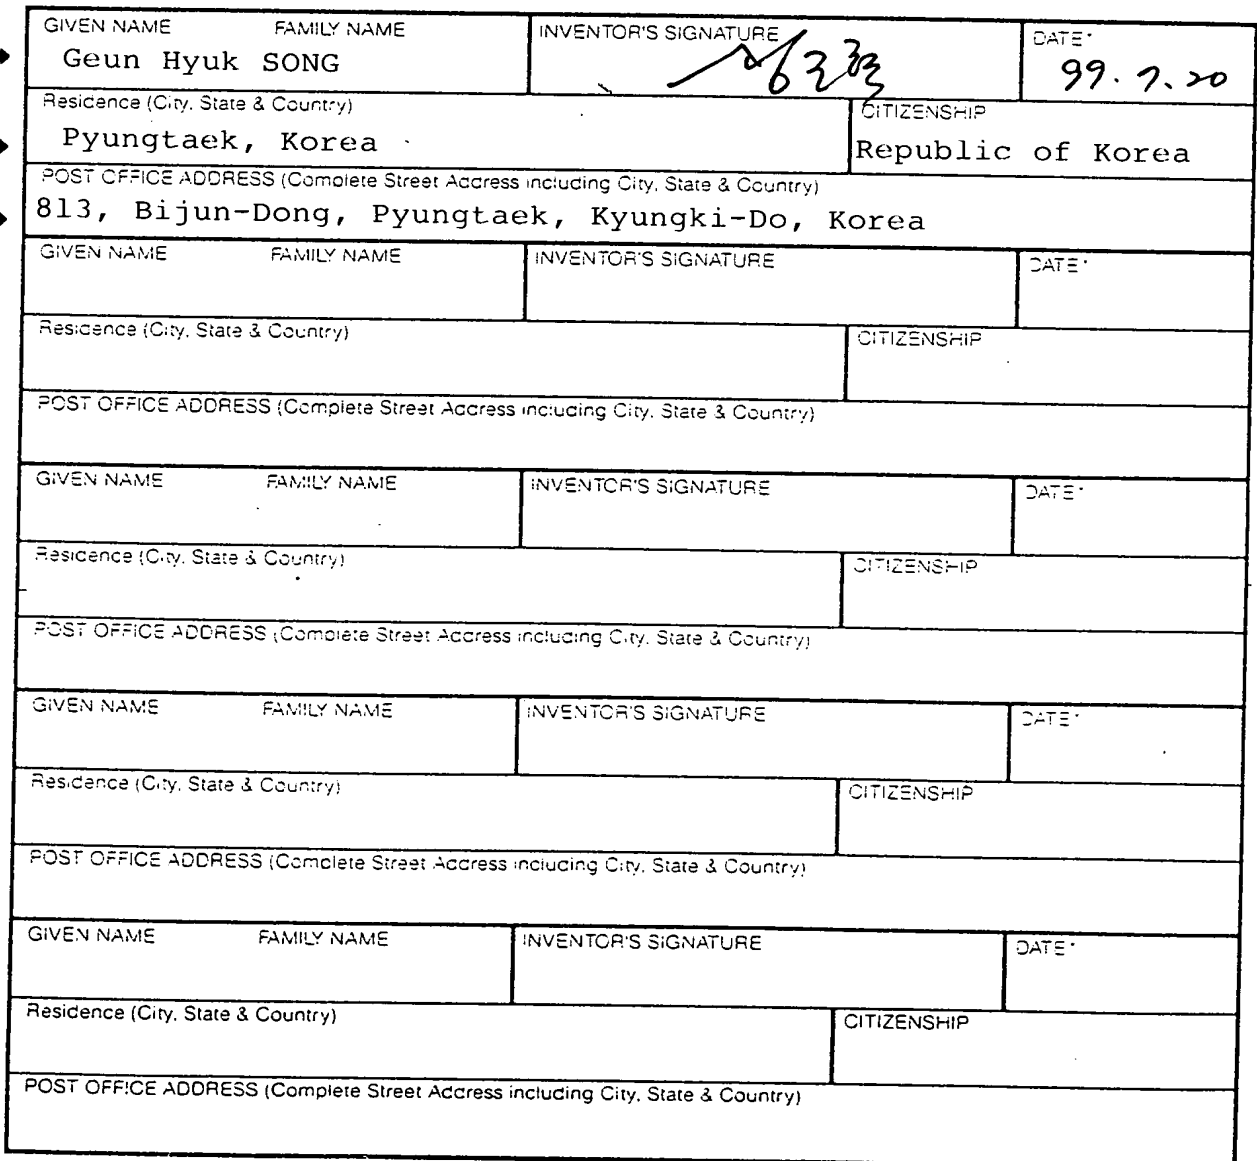 GIVEN NAME FAMILY NAME INVENTOR'S SIGNATURE DATE*
Geun Hyuk SONG 송근혁 99.7.20
Residence (City, State & Country) CITIZENSHIP
Pyungtaek, Korea Republic of Korea
POST OFFICE ADDRESS (Complete Street Address including City, State & Country)
813, Bijun-Dong, Pyungtaek, Kyungki-Do, Korea
GIVEN NAME FAMILY NAME INVENTOR'S SIGNATURE DATE*
Residence (City, State & Country) CITIZENSHIP
POST OFFICE ADDRESS (Complete Street Address including City, State & Country)
GIVEN NAME FAMILY NAME INVENTOR'S SIGNATURE DATE*
Residence (City, State & Country) CITIZENSHIP
POST OFFICE ADDRESS (Complete Street Address including City, State & Country)
GIVEN NAME FAMILY NAME INVENTOR'S SIGNATURE DATE*
Residence (City, State & Country) CITIZENSHIP
POST OFFICE ADDRESS (Complete Street Address including City, State & Country)
GIVEN NAME FAMILY NAME INVENTOR'S SIGNATURE DATE*
Residence (City, State & Country) CITIZENSHIP
POST OFFICE ADDRESS (Complete Street Address including City, State & Country)